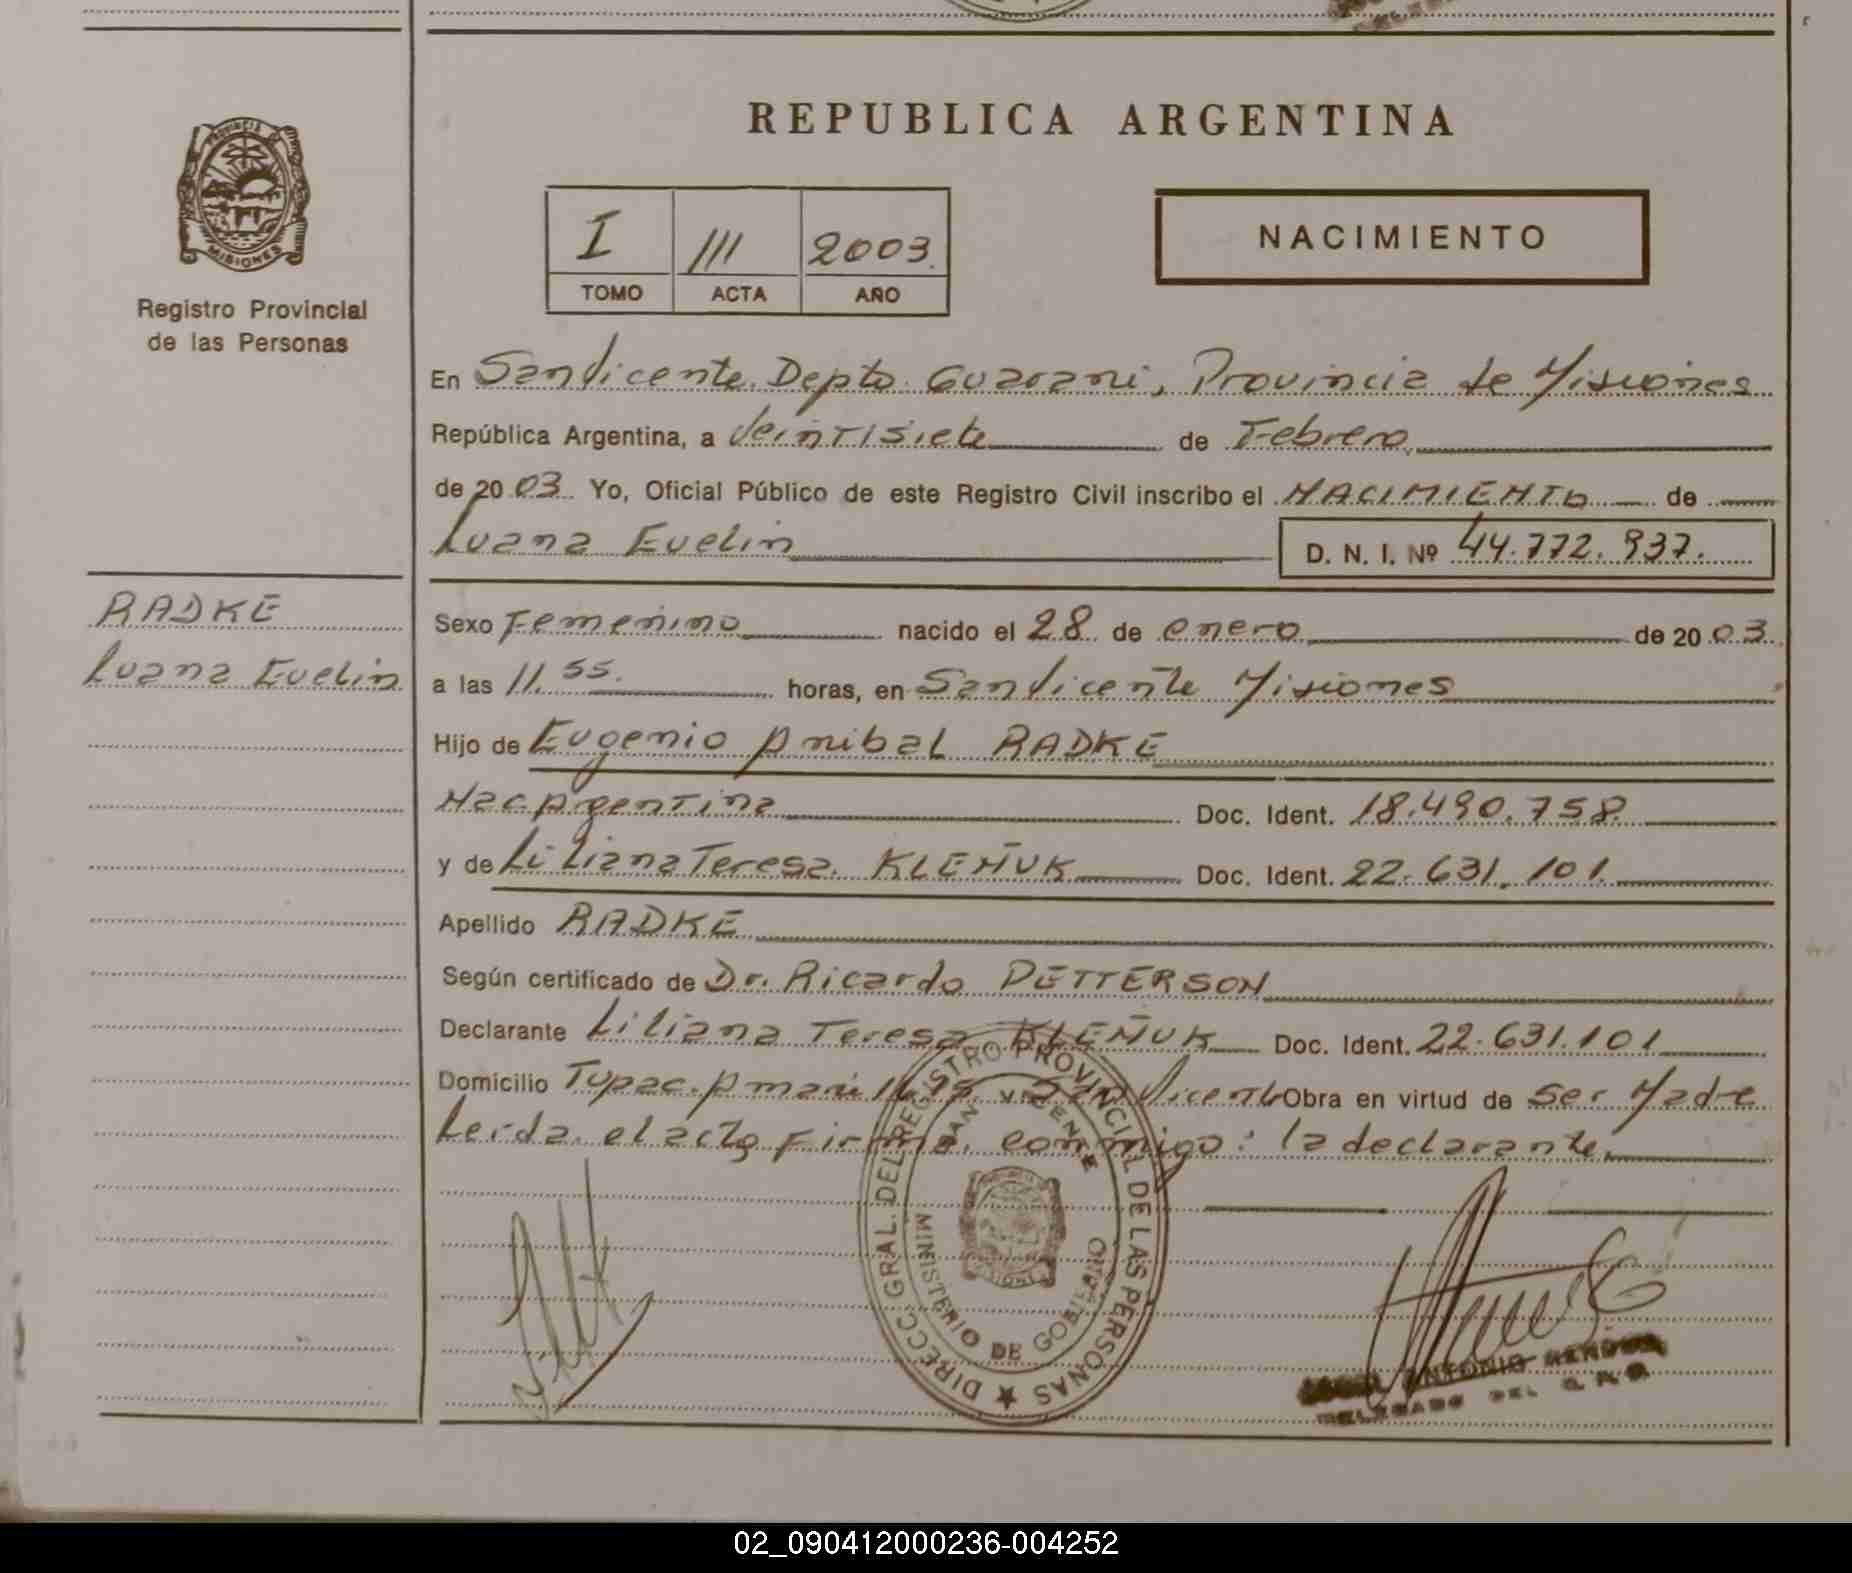 REPUBLICA ARGENTINA
PROVINCIA
MISIONES
Registro Provincial
de las Personas
I III 2003.
TOMO ACTA AÑO
NACIMIENTO
En San Vicente. Depto. Guarani, Provincia de Misiones
República Argentina, a Veintisiete de Febrero.
de 20 03. Yo, Oficial Público de este Registro Civil inscribo el NACIMIENTO de
Luana Evelin D. N. I. Nº 44.772.937.
RADKE
Luana Evelin
Sexo Femenino nacido el 28 de enero de 20 03.
a las 11.55. horas, en San Vicente Misiones
Hijo de Eugenio Anibal RADKE
Nac Argentina Doc. Ident. 18.490.758.
y de Liliana Teresa. KLEÑUK Doc. Ident. 22.631.101.
Apellido RADKE
Según certificado de Dr. Ricardo PETTERSON
Declarante Liliana Teresa KLEÑUK Doc. Ident. 22.631.101
Domicilio Tupac. Amaru San Vicente Obra en virtud de Ser Madre
Leida el acto Firma. conmigo: la declarante.
DIRECC. GRAL. DEL REGISTRO PROVINCIAL DE LAS PERSONAS
SAN VICENTE
MINISTERIO DE GOBIERNO
MISIONES
ANTONIO
DELEGADO DEL
02_090412000236-004252